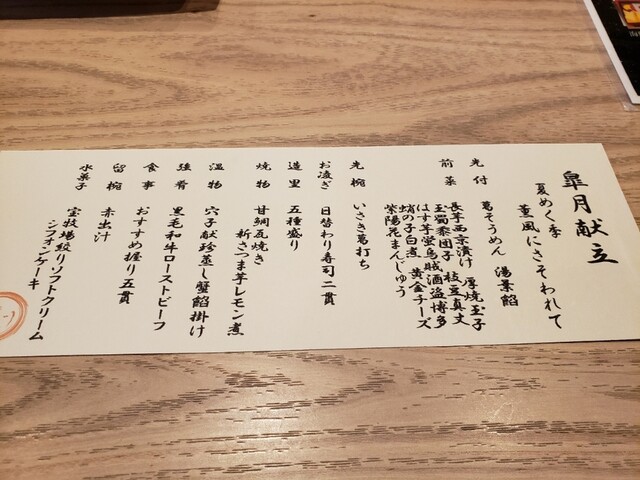 皐月献立
夏めく季
薫風にさそわれて
先付 葛そうめん 湯葉餡
前菜 長芋西京漬け 厚焼玉子
玉蜀黍団子 枝豆真丈
はす芋蛍烏賊酒盗博多
蛸の子白煮 黄金チーズ
紫陽花まんじゅう
先椀 いさき葛打ち
お凌ぎ 日替わり寿司二貫
造里 五種盛り
焼物 甘鯛瓦焼き
新さつま芋レモン煮
温物 穴子献珍蒸し蟹餡掛け
強肴 黒毛和牛ローストビーフ
食事 おすすめ握り五貫
留椀 赤出汁
水菓子 宝牧場絞りソフトクリーム
シフォンケーキ